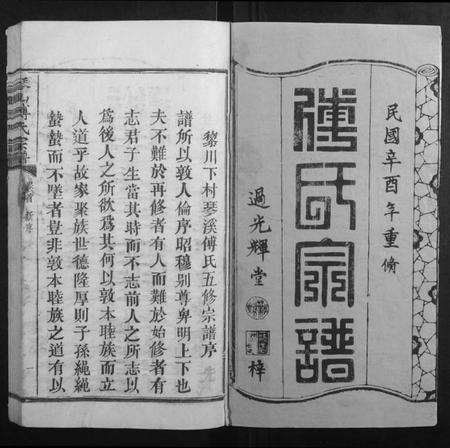 民國辛酉年重脩
傅氏宗譜
過光輝堂
梓
黎川下村琴溪傅氏五修宗譜序
譜所以敦人倫序昭穆别尊卑明上下也
夫不難於再修者有人而難於始修者有
志君子生當其時而不志前人之所志以
爲後人之所欲爲其何以敦本睦族而立
人道乎故家聚族世德隆厚則子孫繩繩
蟄蟄而不墜者豈非敦本睦族之道有以